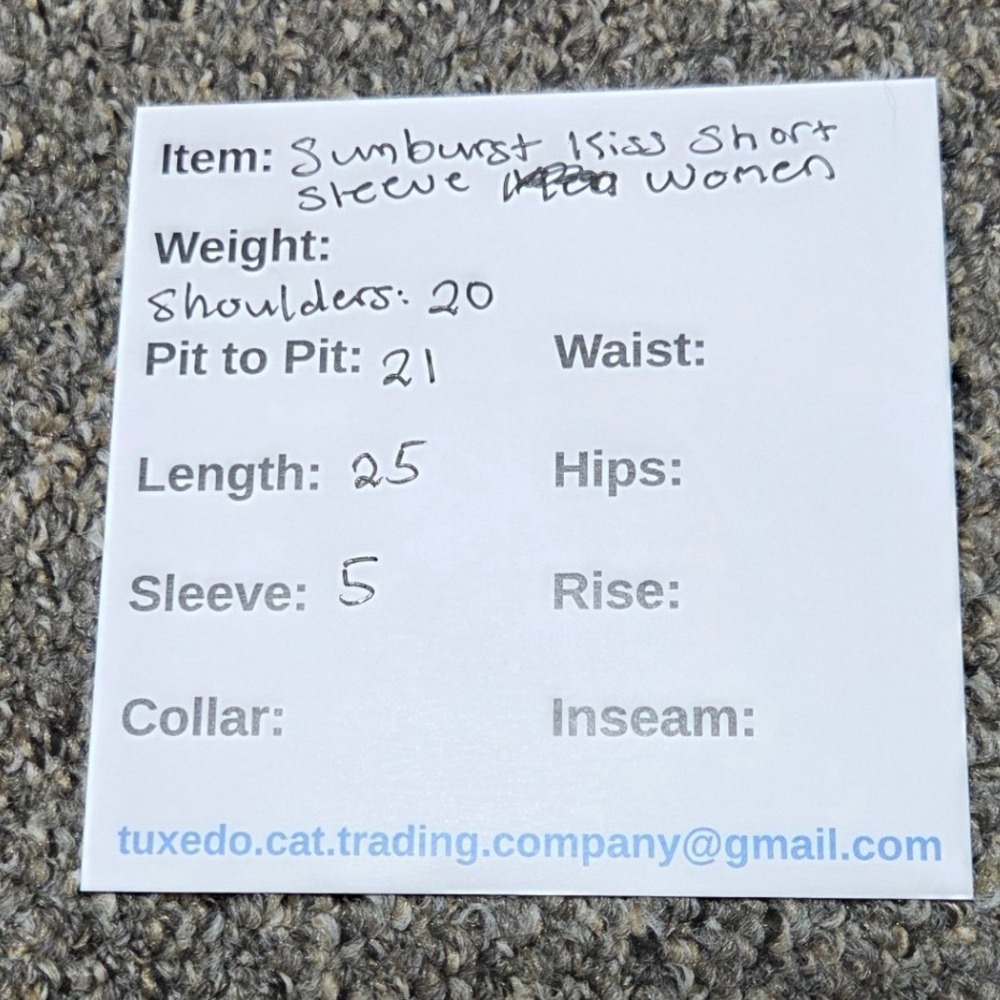 Item: Sunburst Kiss Short
Sleeve Women
Weight:
Shoulders: 20
Pit to Pit: 21
Waist:
Length: 25
Hips:
Sleeve: 5
Rise:
Collar:
Inseam:
tuxedo.cat.trading.company@gmail.com